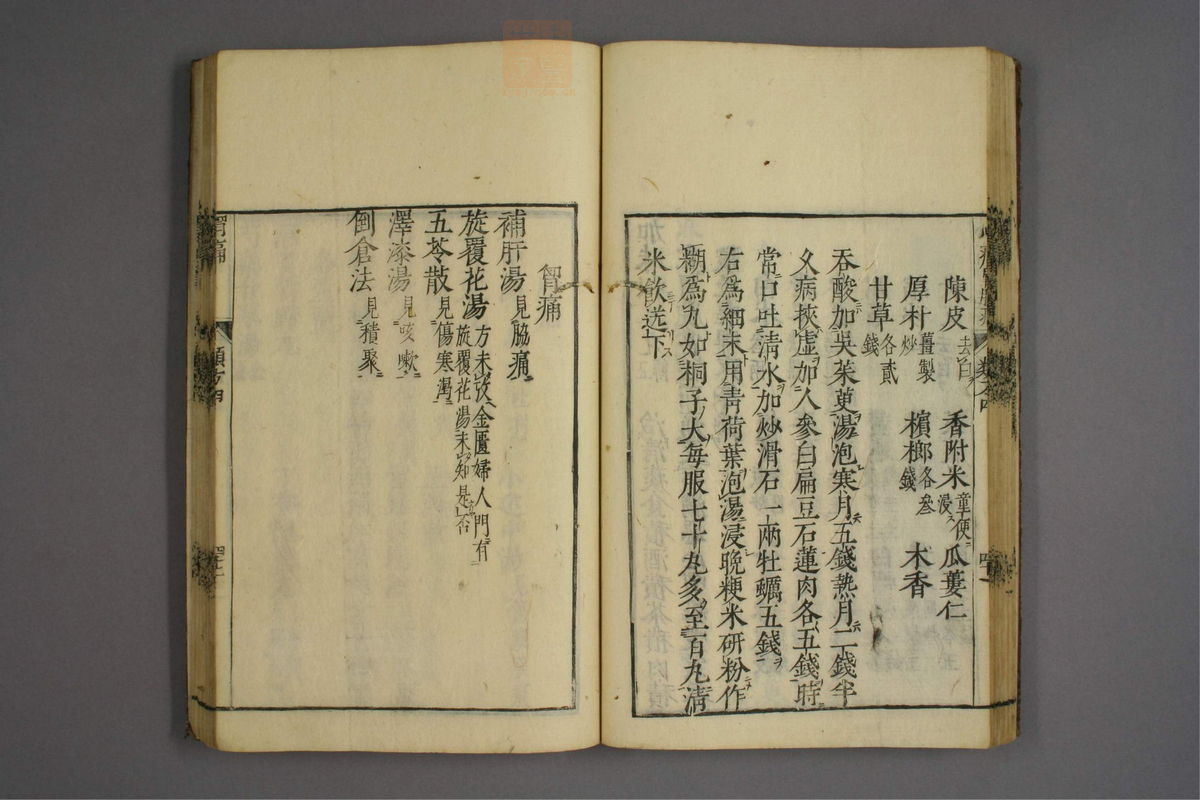 陳皮去白 香附米童便浸 瓜蔞仁
厚朴薑製炒 檳榔各叁錢 木香
甘草各貳錢
吞酸加吳茱萸湯泡寒月五錢熱月二錢半
久病挾虛加人參白扁豆石蓮肉各五錢時
常口吐清水加炒滑石一兩牡蠣五錢
右為細末用青荷葉泡湯浸晚粳米研粉作
糊為丸如桐子大每服七十丸多至一百丸清
米飲送下
胷痛
補肝湯見脇痛
旋覆花湯方未攷金匱婦人門有
旋覆花湯未知是否
五苓散見傷寒渴
澤漆湯見咳嗽
倒倉法見積聚
胷痛
類方四